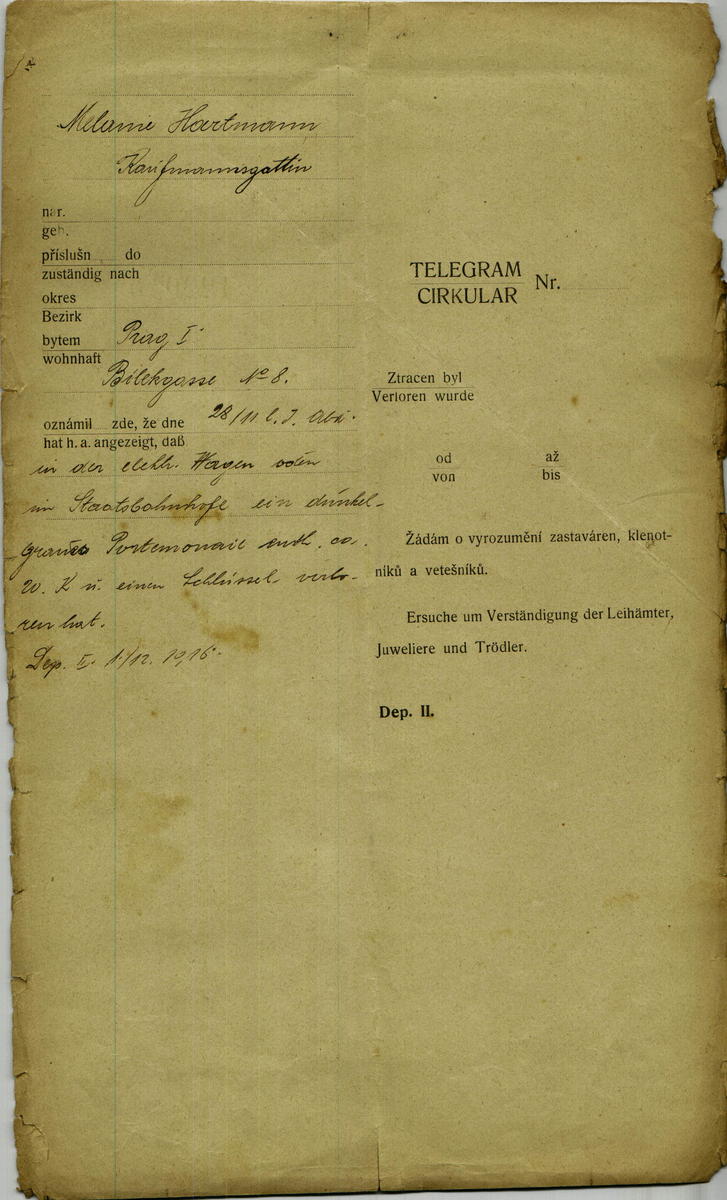 Melanie Hartmann
Kaufmannsgattin
nar.
geh.
příslušn do
zuständig nach
okres
Bezirk
bytem Prag I
wohnhaft
Bilekgasse No 8.
oznámil zde, že dne 28/11 l. J. Abd.
hat h. a. angezeigt, daß
in der elektr. Wagen oder
im Staatsbahnhofe ein dunkel-
graues Portemonaie enth. ca.
20. K u. einen Schlüssel verlo-
ren hat.
Dep. II. 1/12. 1916.
TELEGRAM
CIRKULAR Nr.
Ztracen byl
Verloren wurde
od až
von bis
Žádám o vyrozumění zastaváren, klenot-
níků a vetešníků.
Ersuche um Verständigung der Leihämter,
Juweliere und Trödler.
Dep. II.